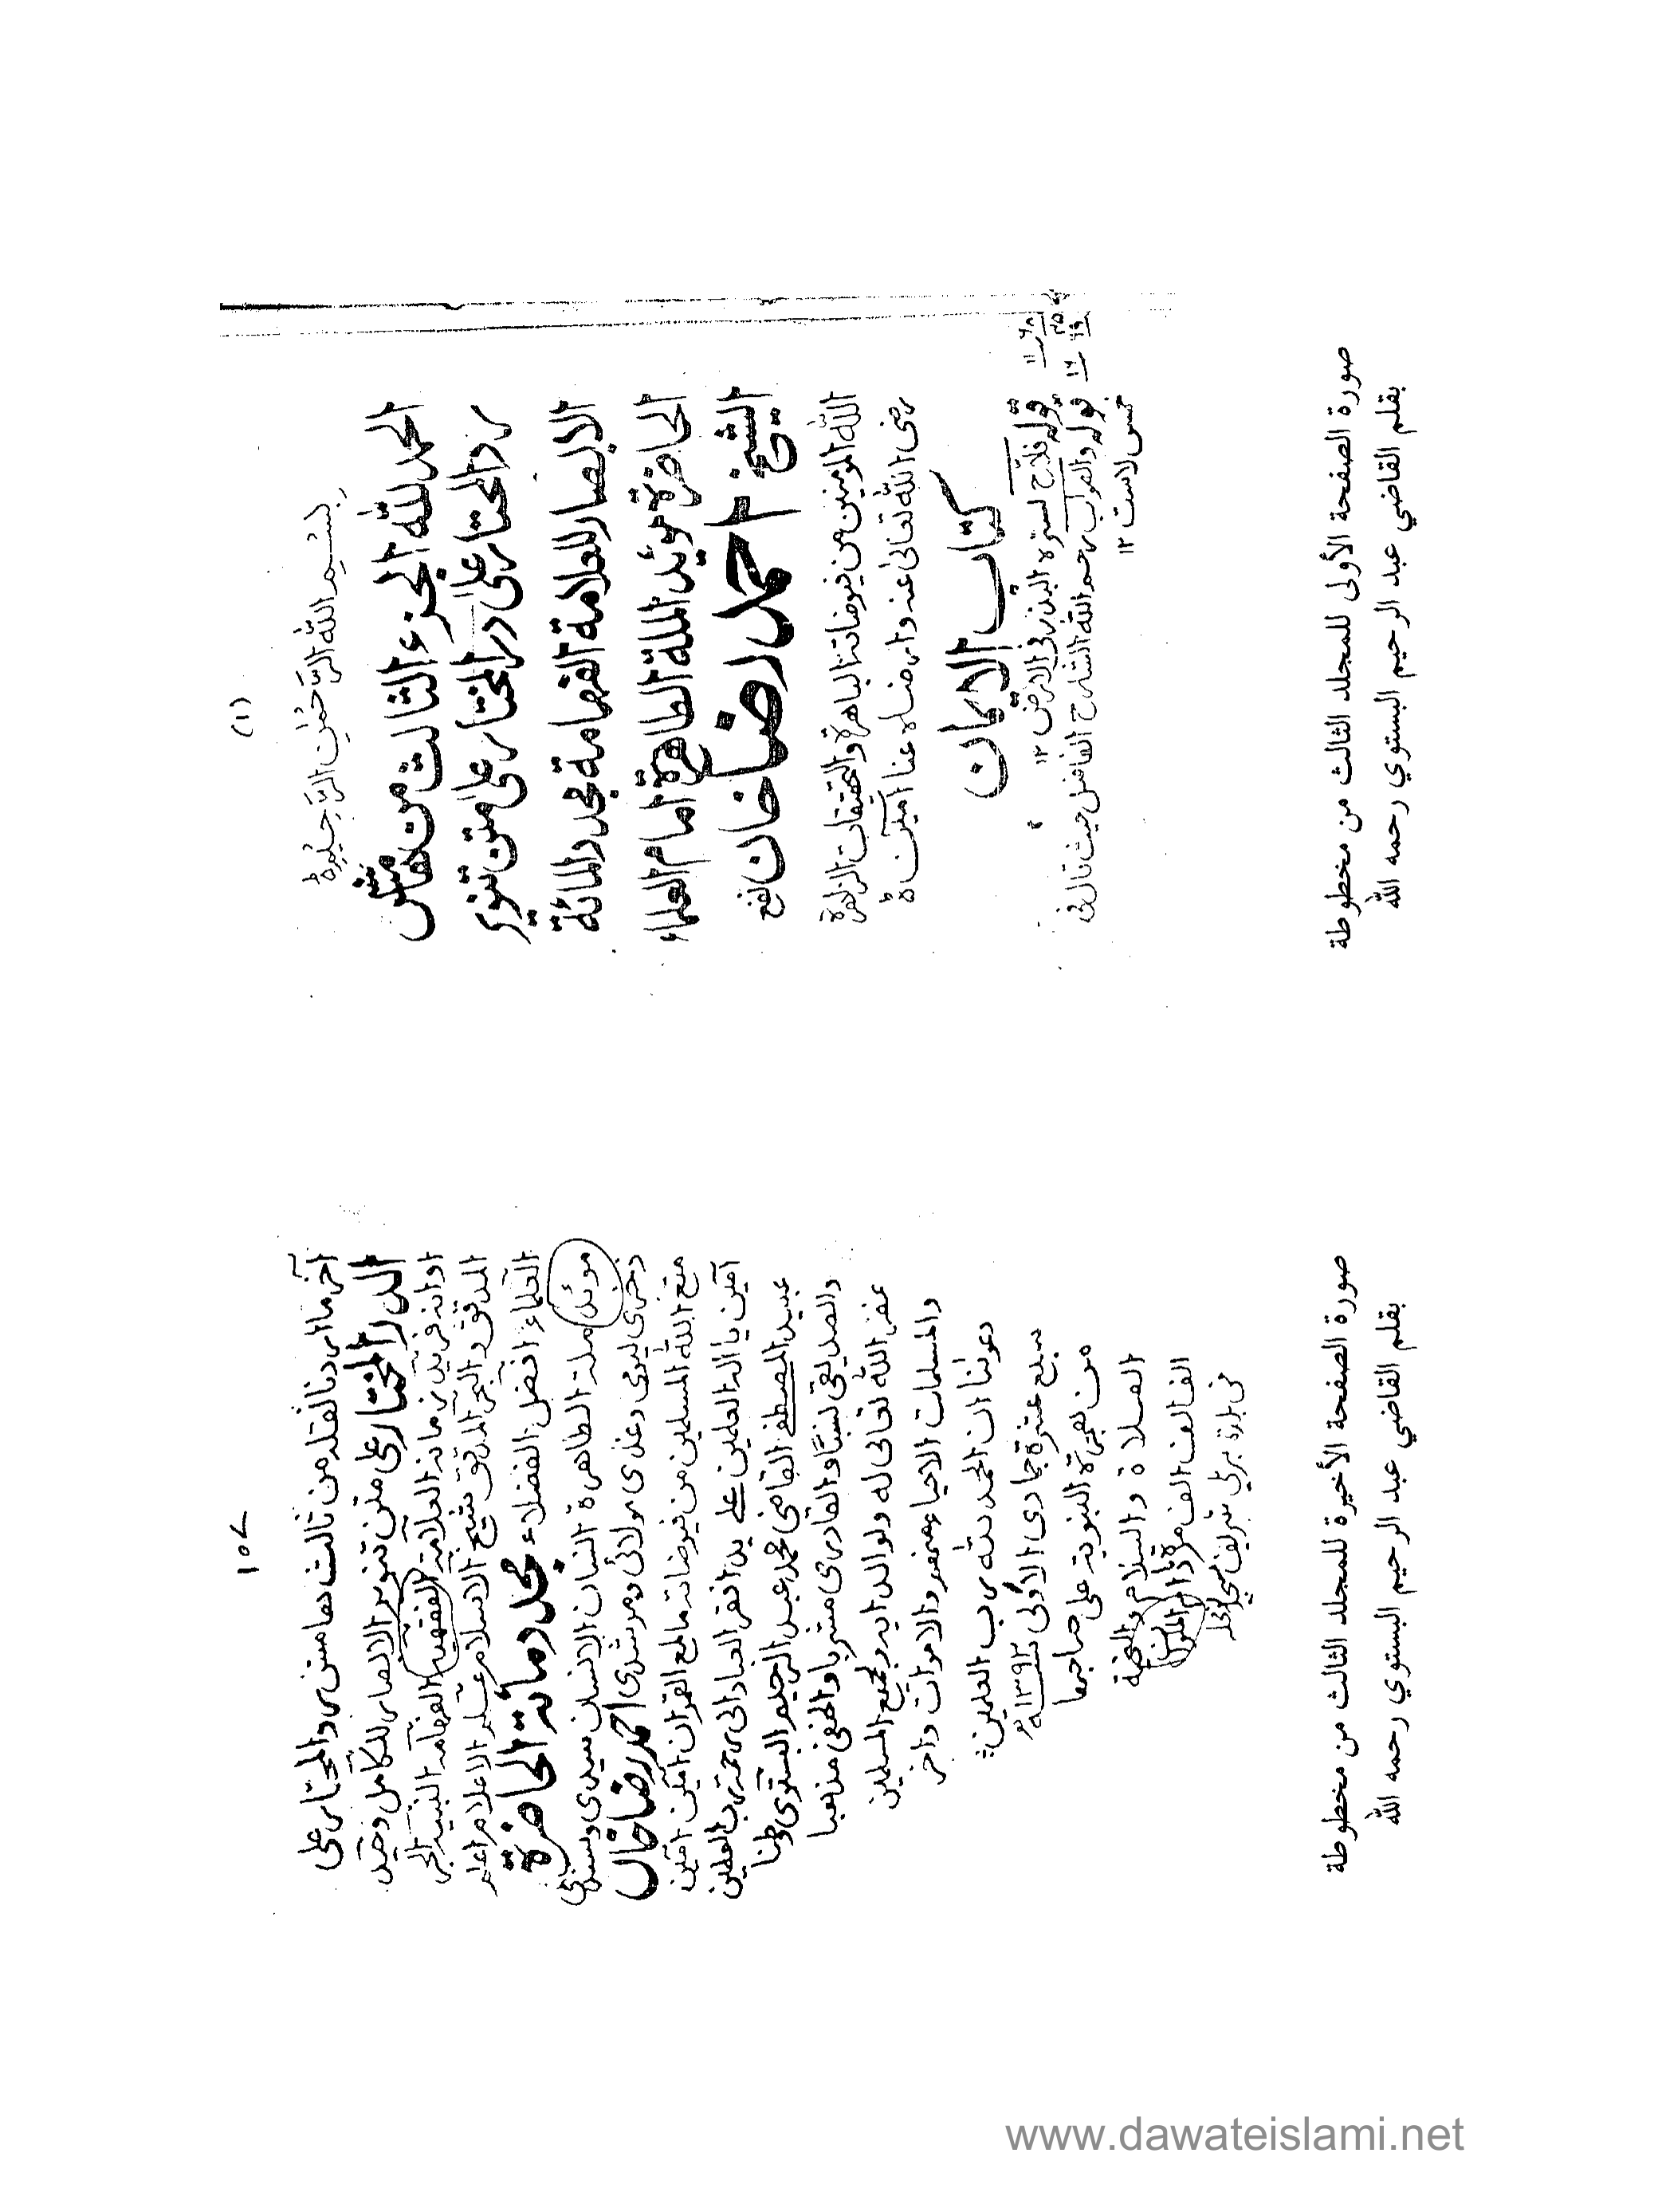 (١)
بسم الله الرحمن الرحيم
الحمد لله الجزء الثالث من هامش
رد المحتار على در المختار على متن تنوير
الابصار للعلامة الفهامة مجدد المائة
الحاضرة موئيد الملة الطاهرة امام العلماء
الشيخ احمد رضا خان نفع
الله المؤمنين من فيوضاته الباهرة والتحقيقات الزاهرة
رضى الله تعالى عنه وارضاه عنا آمين
كتاب الايمان
قوله فلاح لستره البذر فى الارض ١٢
قوله والصواب رحمه الله الشارح الفاضل حيث قال فى
صورة الصفحة الأولى للمجلد الثالث من مخطوطة
بقلم القاضي عبد الرحيم البستوي رحمه الله
١٥٧
آخر ما اردنا نقله من ثالث هامش رد المحتار على
الدر المختار على متن تنوير الابصار للكامل وحيد
اوانه فريد زمانه العلامة الفقيه الفهامه النبيه البحر
المدقق والبحر المدقق شيخ الاسلام علم الاعلام اعلم
العلماء افضل الفضلاء مجدد مائة الحاضرة
موئيد ملة الطاهرة اللسان الانسان سيدى وسندى
وذخرى ليومى وغدى مولائى ومرشدى احمد رضا خاں
متع الله المسلمين من فيوضاته مالمع القمران آمين آمين
آمين يا اله العلمين على يد افقر العباد الى رحمة رب العلمين
عبيد المصطفى القاضى محمد عبد الرحيم البستوى وطنا
والصديقى نسبا والقادرى مشربا والحنفى مذهبا
غفر الله تعالى له ولوالد ايه وجميع المسلمين
والمسلمات الاحياء منهم والاموات واخر
دعوانا ان الحمد لله رب العلمين
سبع عشرة جمادى الأولى ١٣٩٢ه
من هجرة النبوية على صاحبها
الصلاة والسلام والتحية
الف الف الف مرة
فى بلدة بريلى شريف
صورة الصفحة الأخيرة للمجلد الثالث من مخطوطة
بقلم القاضي عبد الرحيم البستوي رحمه الله
www.dawateislami.net